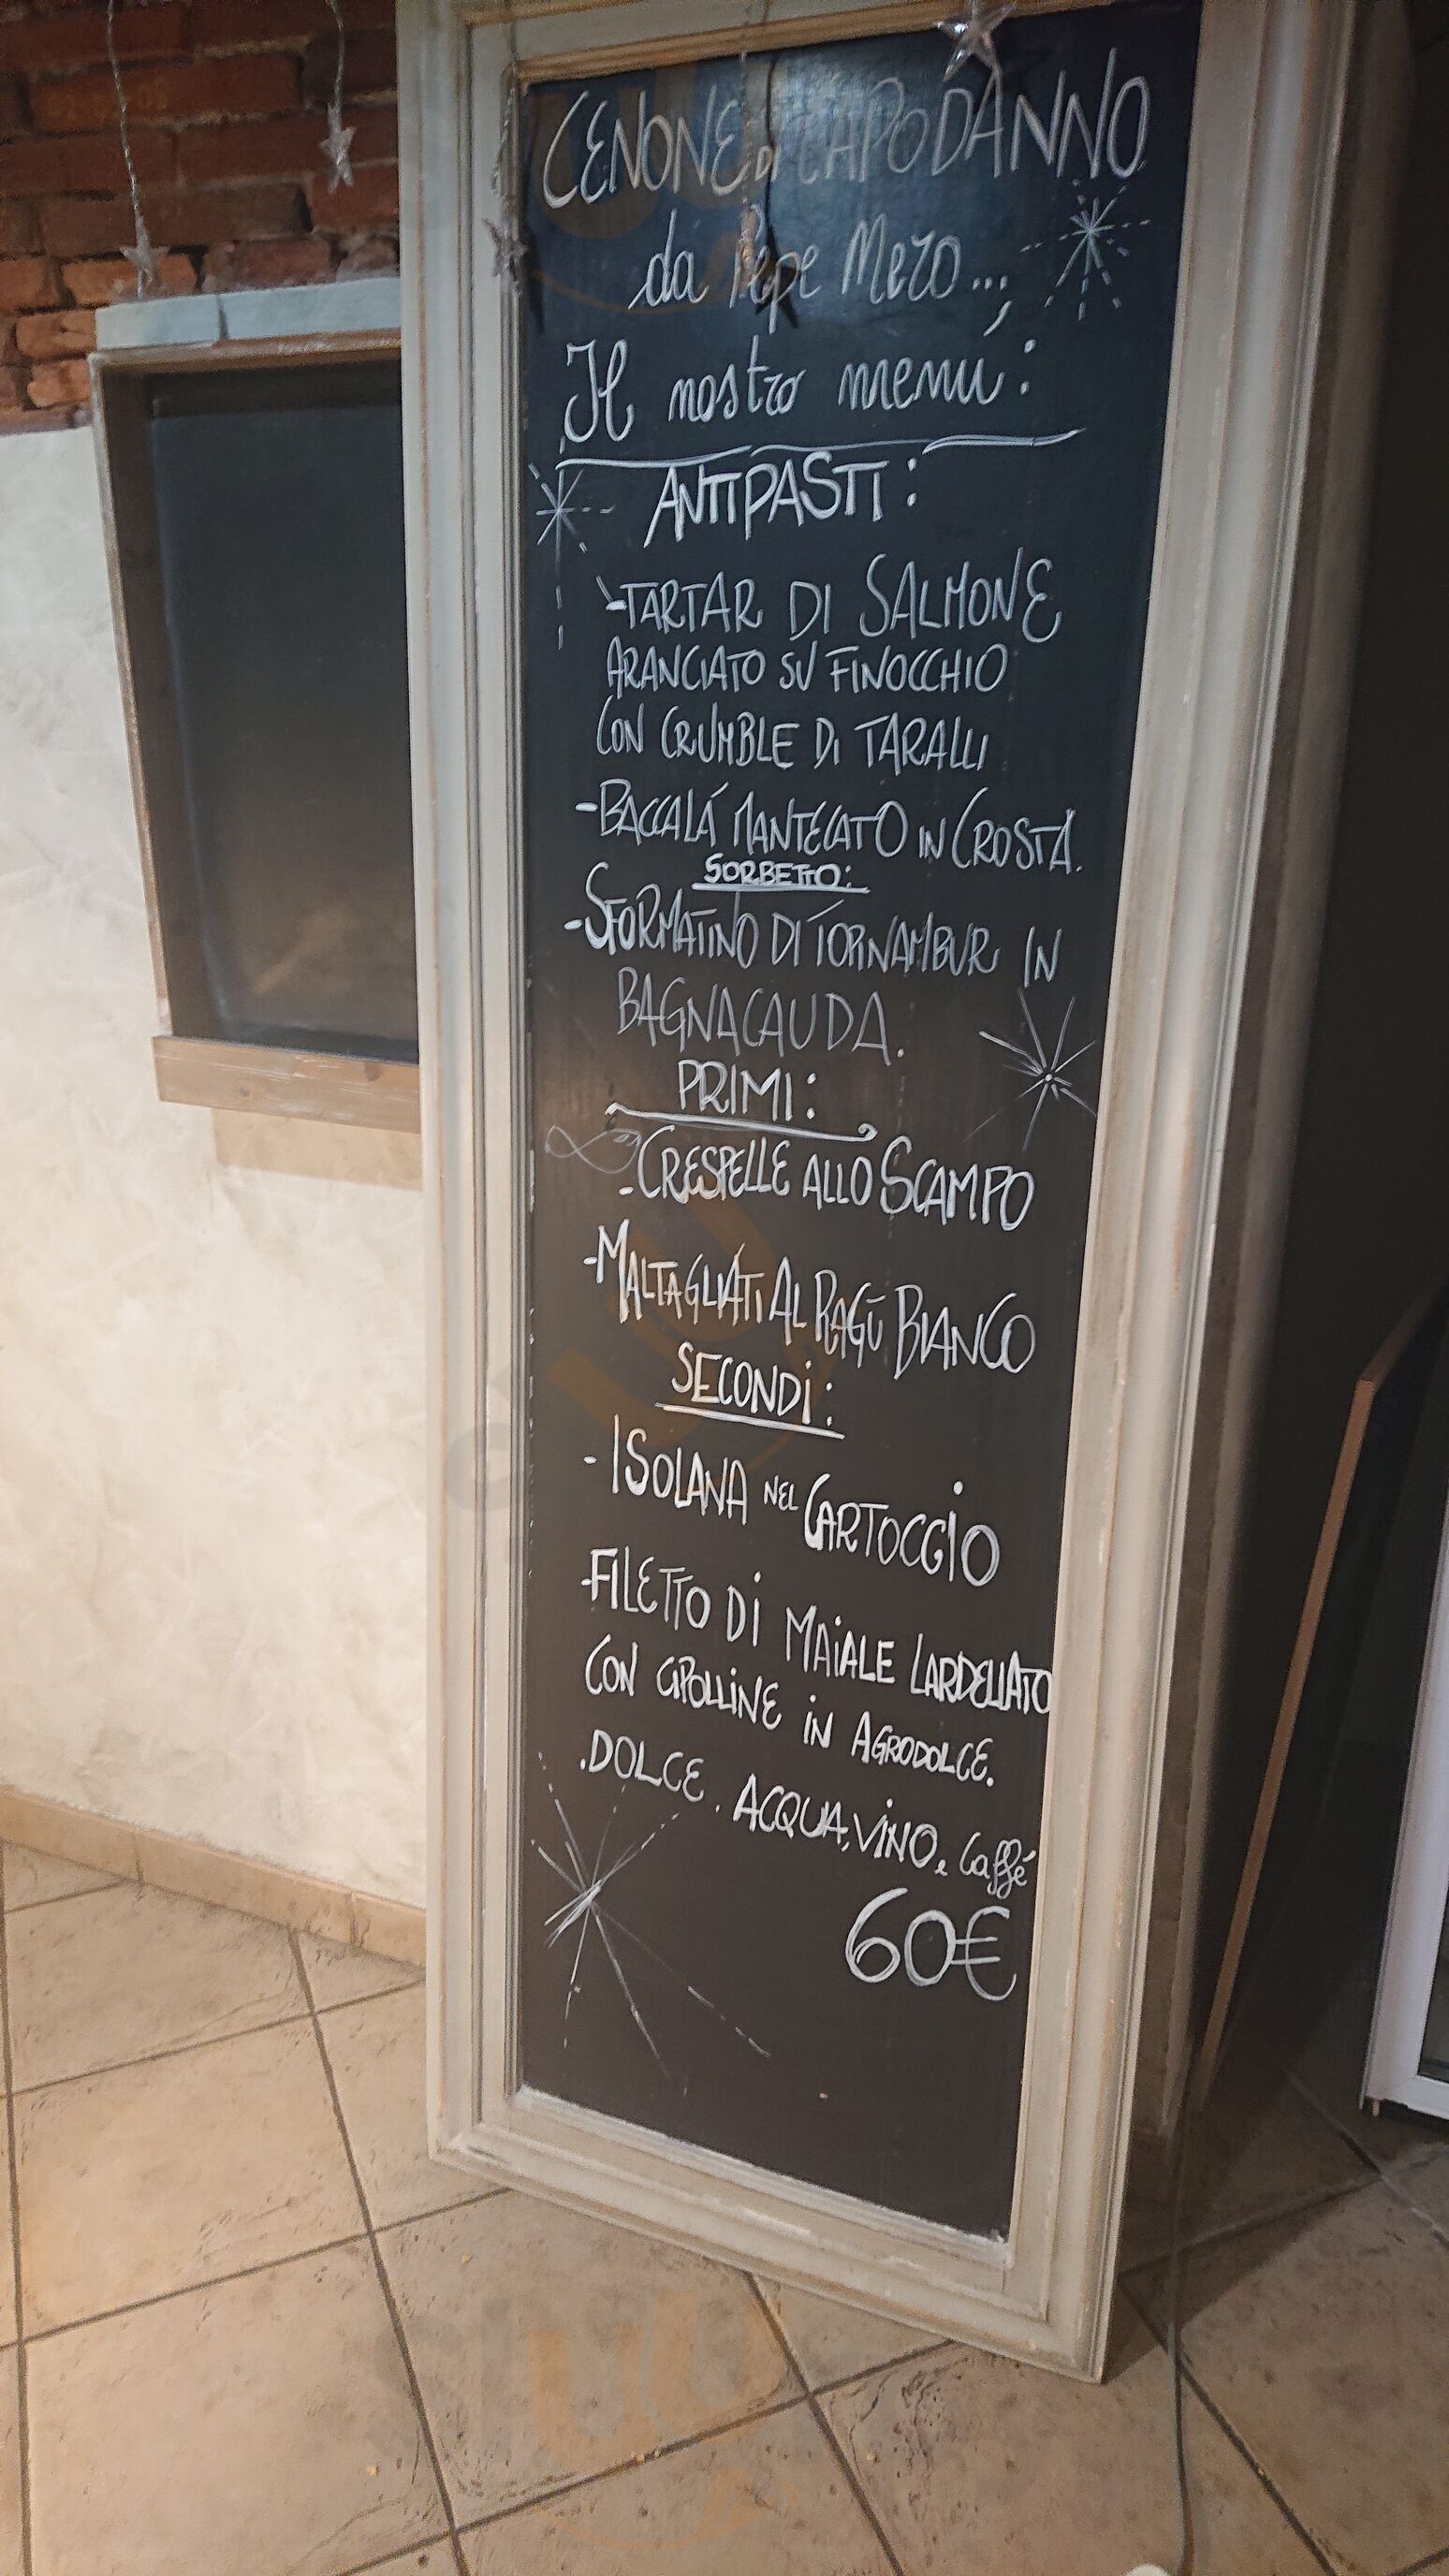 CENONE DI CAPODANNO
da Pepe Mezo...
Il nostro menú:
ANTIPASTI:
-TARTAR DI SALMONE
ARANCIATO SU FINOCCHIO
CON CRUMBLE DI TARALLI
-BACCALÁ MANTECATO IN CROSTA.
SORBETTO:
-SFORMATINO DI TOPINAMBUR IN
BAGNACAUDA.
PRIMI:
-CRESPELLE ALLO SCAMPO
-MALTAGLIATI AL RAGÙ BIANCO
SECONDI:
-ISOLANA NEL CARTOCCIO
-FILETTO DI MAIALE LARDELLATO
CON CIPOLLINE IN AGRODOLCE.
.DOLCE. ACQUA, VINO, e Caffé
60€